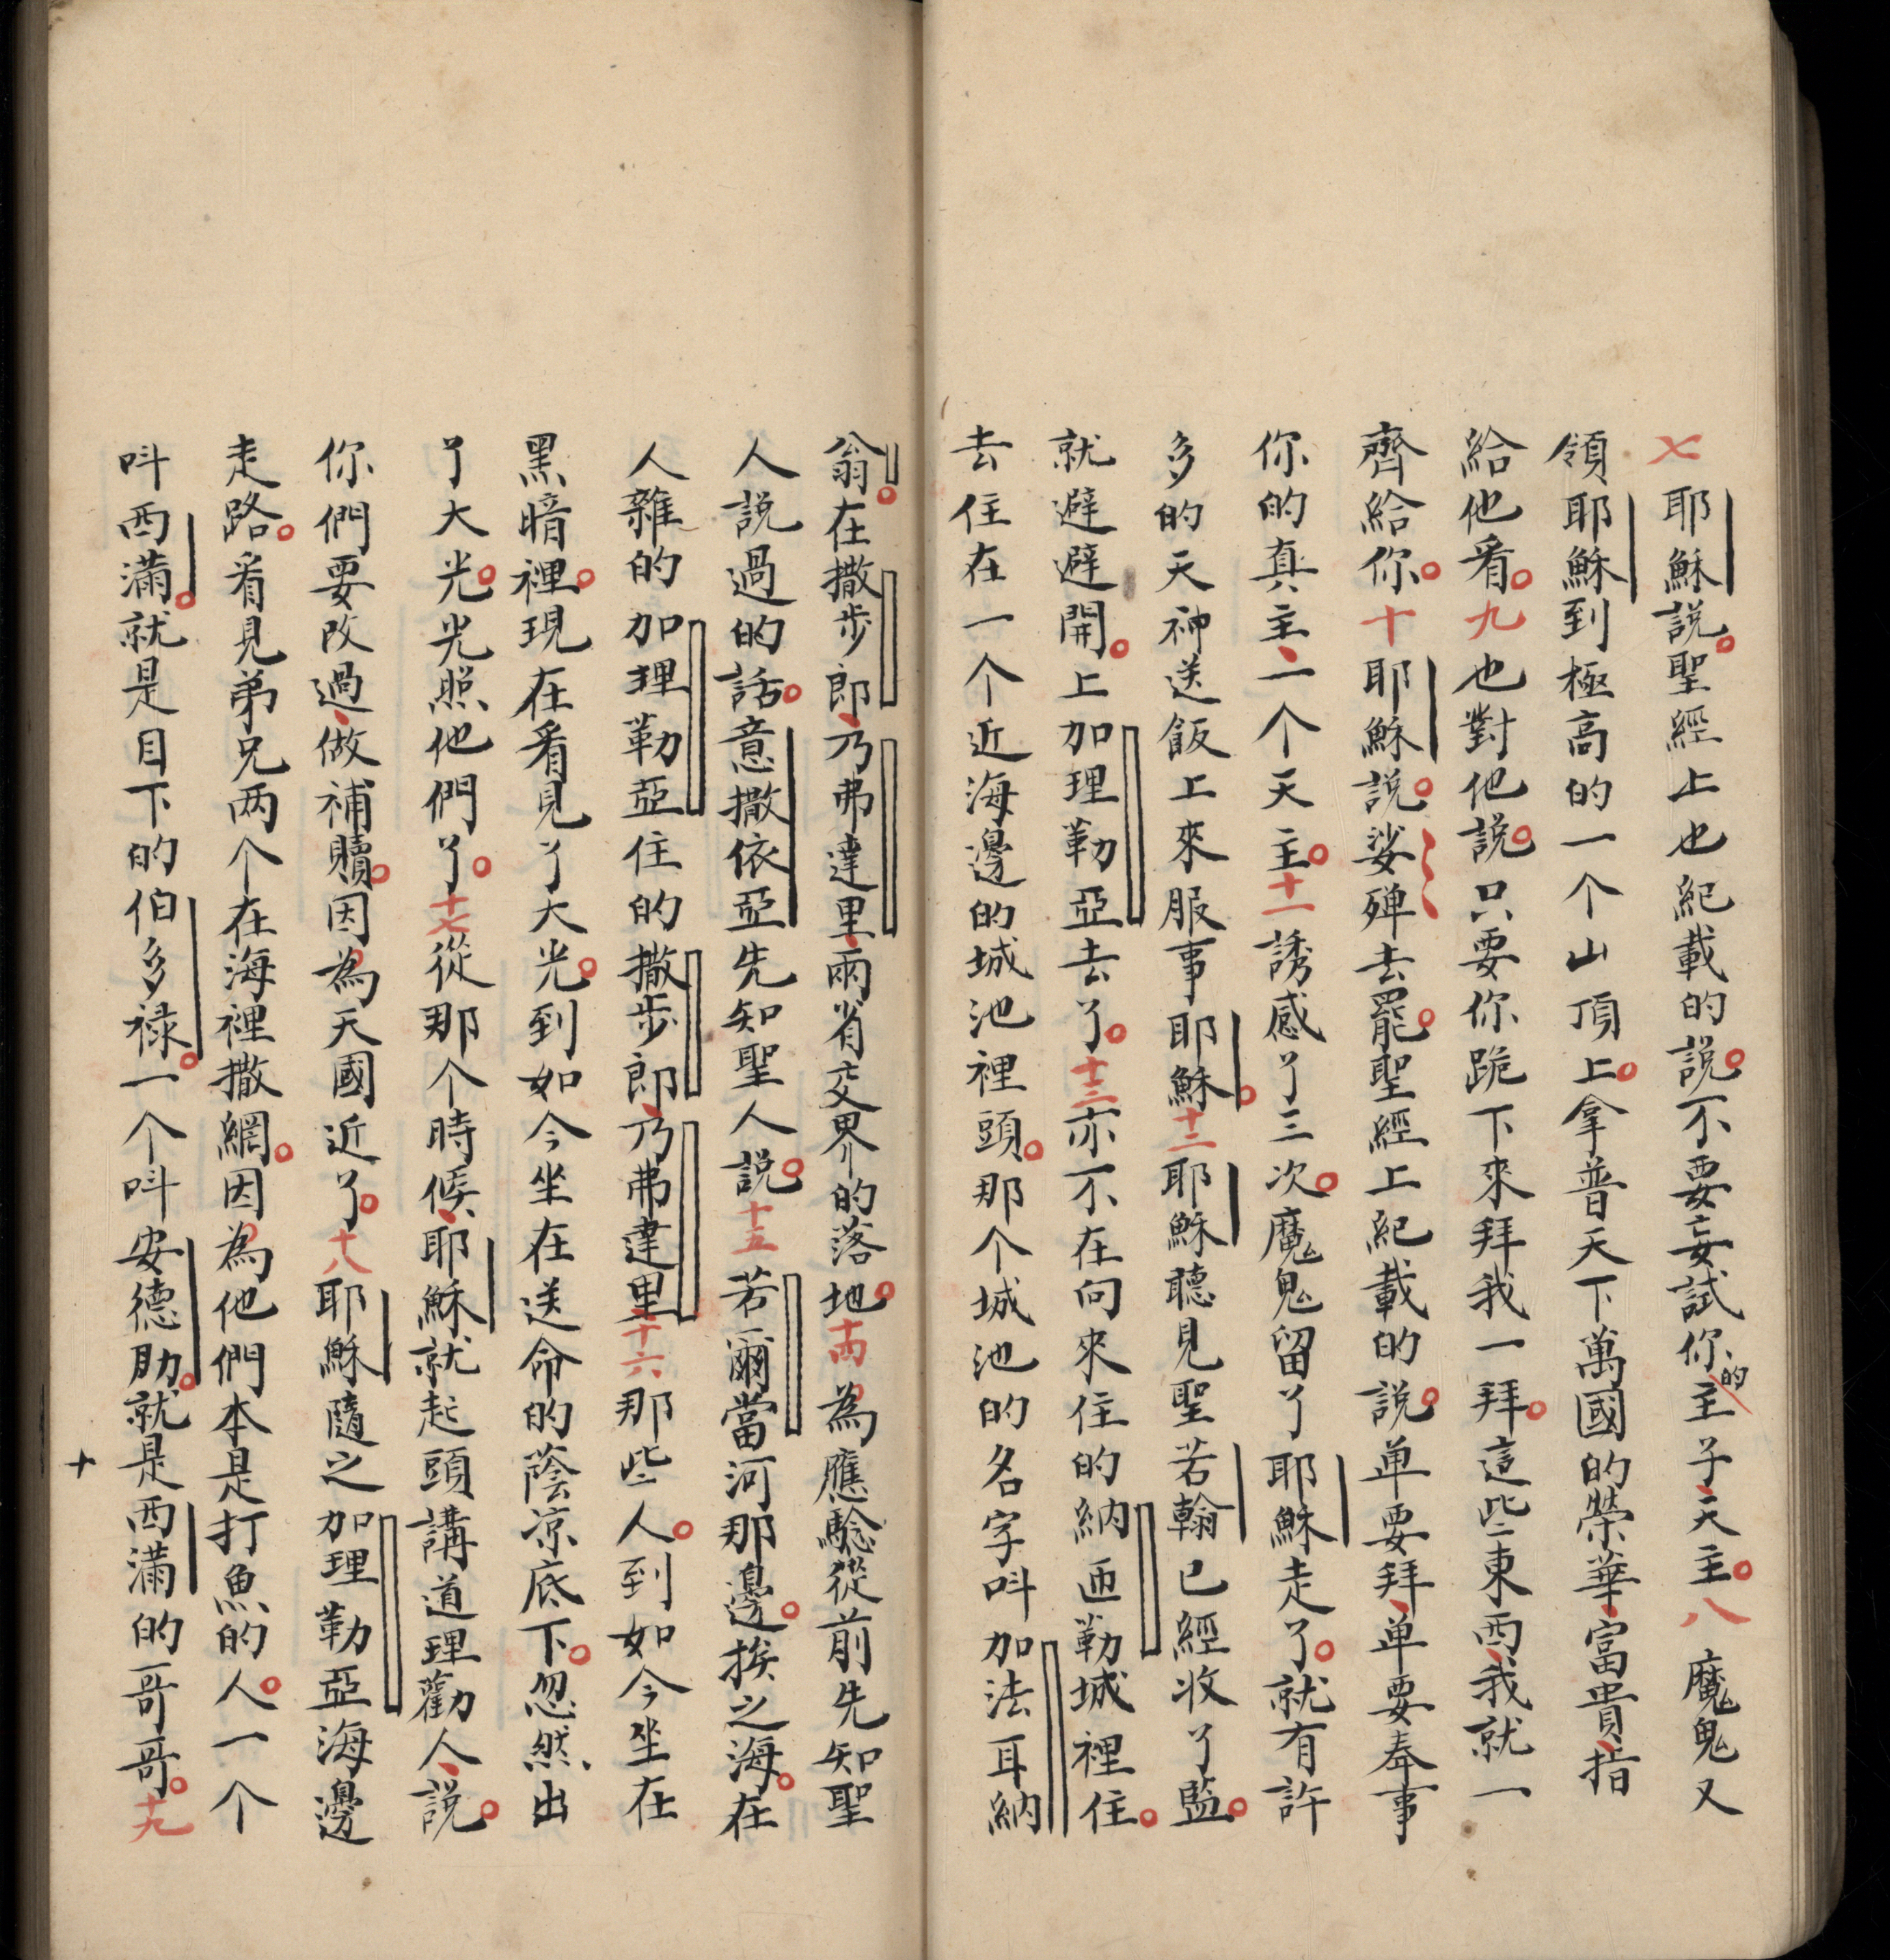 七耶穌說聖經上也紀載的說不要妄試你的主子天主八魔鬼又
領耶穌到極高的一个山頂上拿普天下萬國的榮華富貴指
給他看九也對他說只要你跪下來拜我一拜這些東西我就一
齊給你十耶穌說娑殫去罷聖經上紀載的說单要拜单要奉事
你的真主一个天主十一誘感了三次魔鬼留了耶穌走了就有許
多的天神送飯上來服事耶穌十二耶穌聽見聖若翰已經收了監
就避避開上加理勒亞去了十三亦不在向來住的納匝勒城裡住
去住在一个近海邊的城池裡頭那个城池的名字呌加法耳納
翁在撒步郎乃弗達里兩省交界的落地十四為應驗從前先知聖
人說過的話意撒依亞先知聖人說十五若爾當河那邊挨之海在
人雜的加理勒亞住的撒步郎乃弗達里十六那些人到如今坐在
黑暗裡現在看見了大光到如今坐在送命的蔭凉底下忽然出
了大光光照他們了十七從那个時候耶穌就起頭講道理勸人說
你們要改過做補贖因為天國近了十八耶穌隨之加理勒亞海邊
走路看見弟兄两个在海裡撒網因為他們本是打魚的人一个
呌西滿就是目下的伯多祿一个呌安德肋就是西滿的哥哥十九